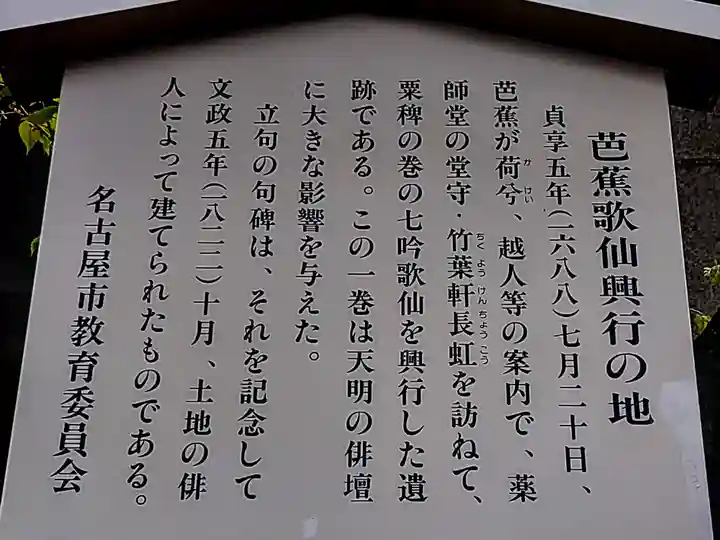 芭蕉歌仙興行の地
貞享五年(一六八八)七月二十日、
芭蕉が荷兮、越人等の案内で、薬
師堂の堂守・竹葉軒長虹を訪ねて、
粟稗の巻の七吟歌仙を興行した遺
跡である。この一巻は天明の俳壇
に大きな影響を与えた。
立句の句碑は、それを記念して
文政五年(一八二二)十月、土地の俳
人によって建てられたものである。
名古屋市教育委員会
か けい
ちく よう けん ちょう こう